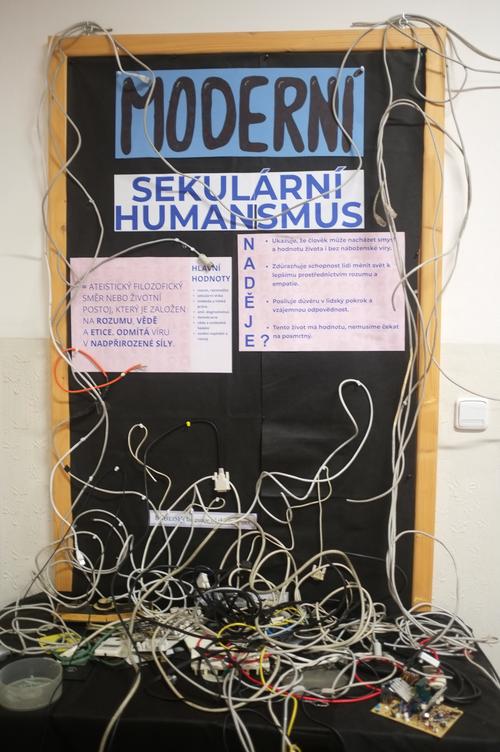 MODERNÍ
SEKULÁRNÍ
HUMANISMUS
ATEISTICKÝ FILOZOFICKÝ
SMĚR NEBO ŽIVOTNÍ
POSTOJ, KTERÝ JE ZALOŽEN
NA ROZUMU, VĚDĚ
A ETICE. ODMÍTÁ VÍRU
V NADPŘIROZENÉ SÍLY.
HLAVNÍ
HODNOTY
NADĚJE?
Ukazuje, že člověk může nacházet smysl
a hodnotu života i bez náboženské víry.
Zdůrazňuje schopnost lidí měnit svět k
lepšímu prostřednictvím rozumu a
empatie.
Posiluje důvěru v lidský pokrok a
vzájemnou odpovědnost.
Tento život má hodnotu, nemusíme čekat
na posmrtný.